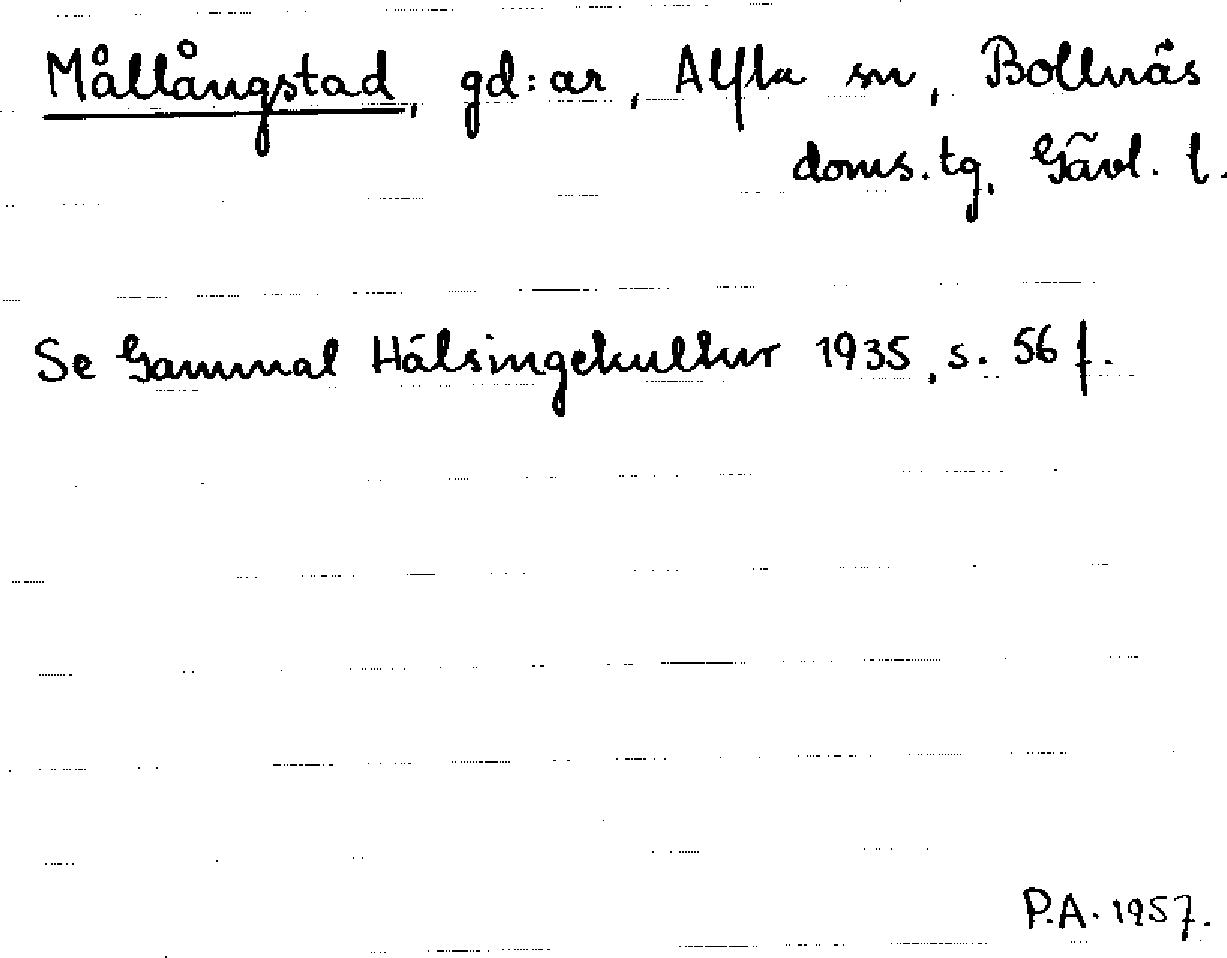 Mållångstad, gd:ar, Alfta sn, Bollnäs
doms.tg, Gävl. l.
Se Gammal Hälsingekultur 1935, s. 56 f.
P.A. 1957.